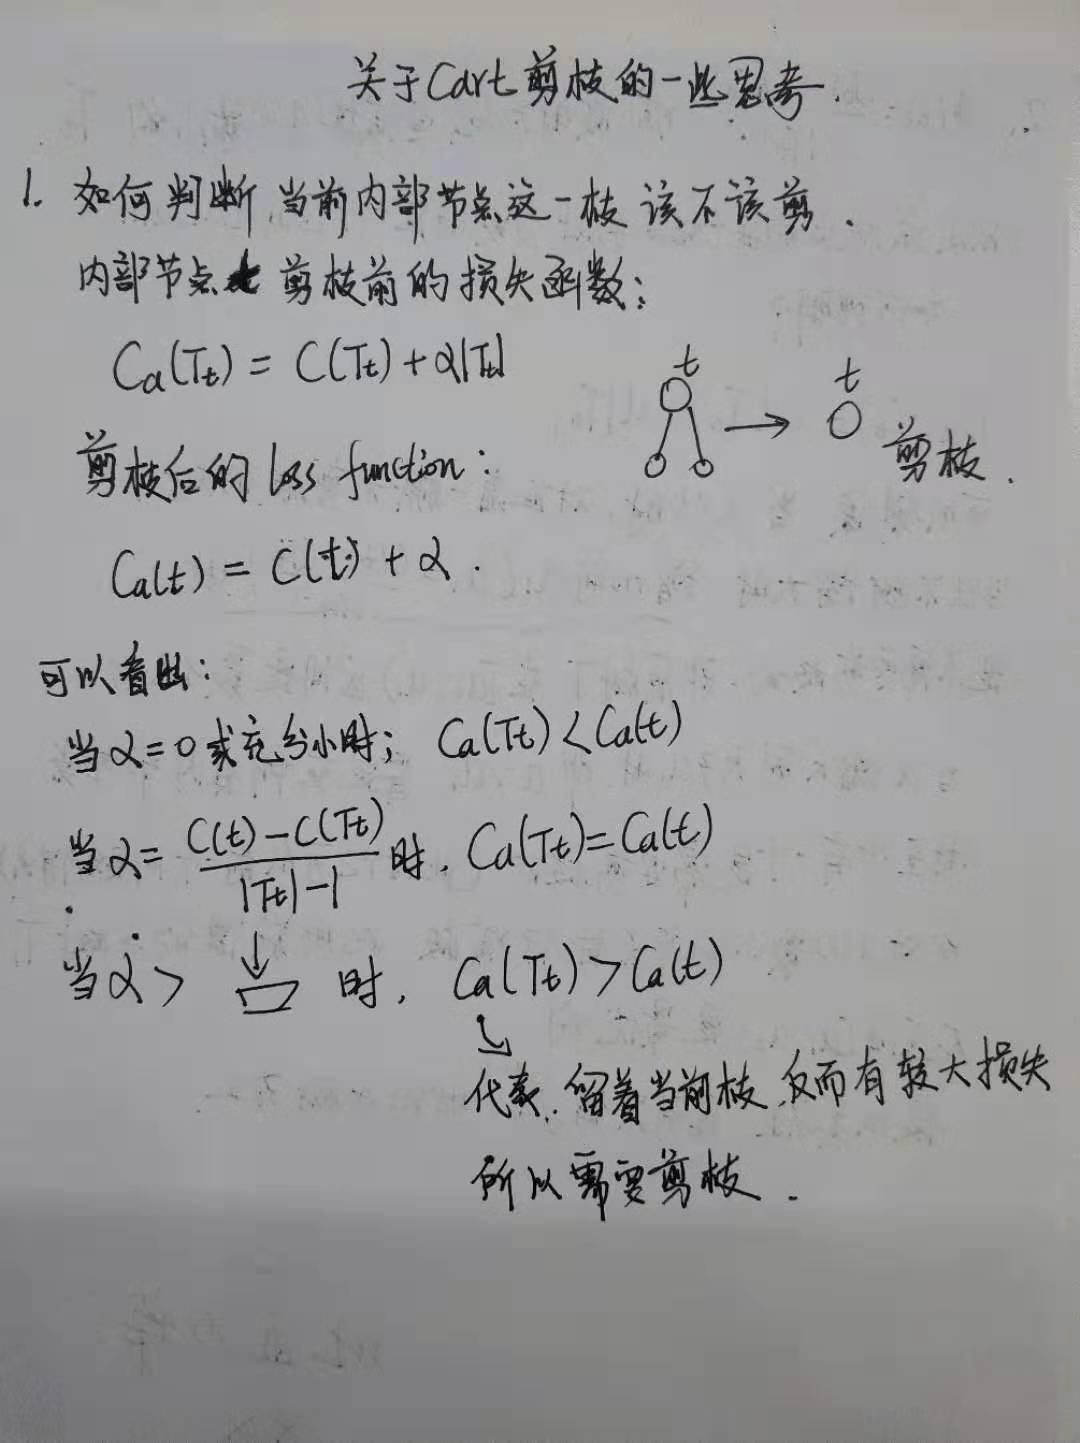 关于Cart剪枝的一些思考.
1. 如何判断当前内部节点这一枝该不该剪.
内部节点 剪枝前的损失函数:
Ca(Tt) = C(Tt) + α|Tt|
t
t
剪枝.
剪枝后的 loss function:
Ca(t) = C(t) + α.
可以看出:
当α=0或充分小时; Ca(Tt) < Ca(t)
当α= C(t)-C(Tt) / |Tt|-1 时, Ca(Tt)=Ca(t)
当α> 时, Ca(Tt) > Ca(t)
代表, 留着当前枝, 反而有较大损失
所以需要剪枝.